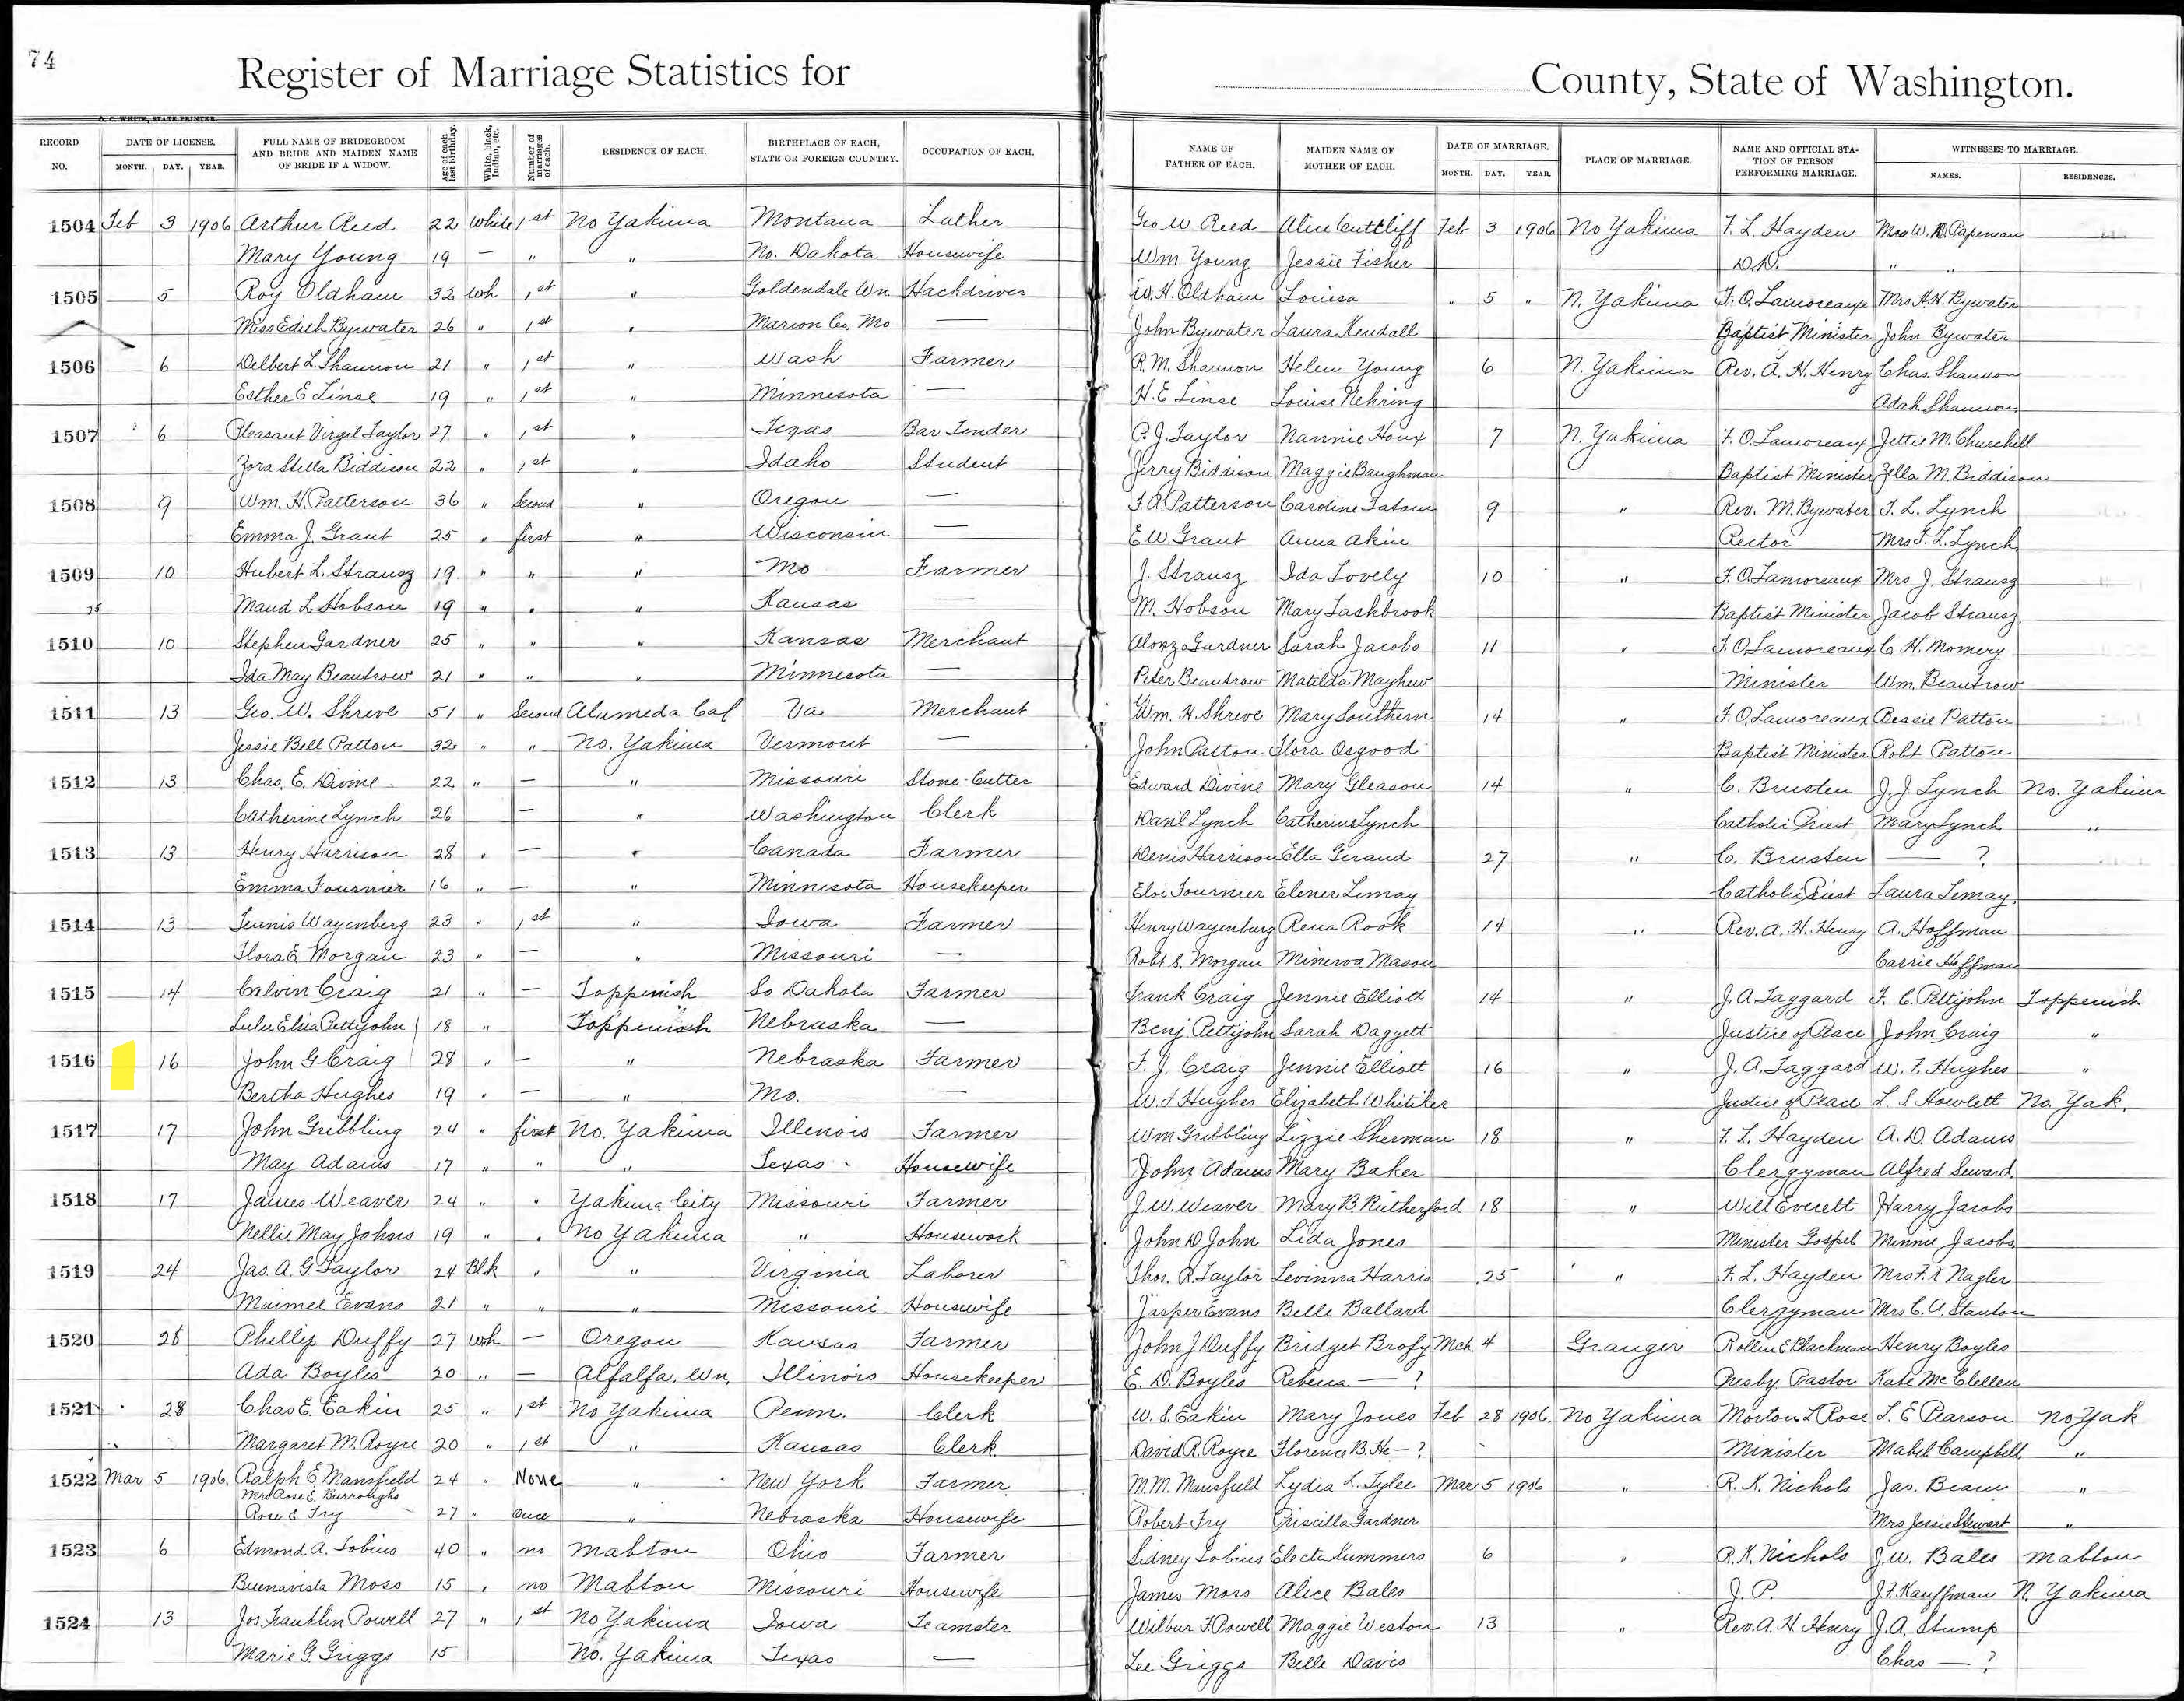 74
Register of Marriage Statistics for County, State of Washington.
O. C. WHITE, STATE PRINTER.
RECORD NO. DATE OF LICENSE. MONTH. DAY. YEAR. FULL NAME OF BRIDEGROOM AND BRIDE AND MAIDEN NAME OF BRIDE IF A WIDOW. Age of each last birthday. White, black, Indian, etc. Number of marriages of each. RESIDENCE OF EACH. BIRTHPLACE OF EACH, STATE OR FOREIGN COUNTRY. OCCUPATION OF EACH. NAME OF FATHER OF EACH. MAIDEN NAME OF MOTHER OF EACH. DATE OF MARRIAGE. MONTH. DAY. YEAR. PLACE OF MARRIAGE. NAME AND OFFICIAL STATION OF PERSON PERFORMING MARRIAGE. WITNESSES TO MARRIAGE. NAMES. RESIDENCES.
1504 Feb 3 1906 Arthur Reed 22 White 1st No Yakima Montana Lather Geo W Reed Alice Cuttliff Feb 3 1906 No Yakima F. L. Hayden Mrs W. D. Papineau
Mary Young 19 — " " No. Dakota Housewife Wm. Young Jessie Fisher D.D. " "
1505 5 Roy Oldham 32 Wh 1st " Goldendale Wn. Hackdriver W. H. Oldham Louisa " 5 " N. Yakima F. O. Lamoreaux Mrs H. H. Bywater
Miss Edith Bywater 26 " 1st " Marion Co, Mo — John Bywater Laura Kendall Baptist Minister John Bywater
1506 6 Delbert L. Shannon 21 " 1st " Wash Farmer R. M. Shannon Helen Young 6 N. Yakima Rev. A. H. Henry Chas. Shannon
Esther E Linse 19 " 1st " Minnesota — H. E Linse Louise Nehring Adah Shannon
1507 6 Pleasant Virgil Taylor 27 " 1st " Texas Bar Tender P. J. Taylor Nannie Houx 7 N. Yakima F. O. Lamoreaux Jettie M. Churchill
Zora Stella Biddison 22 " 1st " Idaho Student Jerry Biddison Maggie Baughman Baptist Minister Zella M. Biddison
1508 9 Wm. H. Patterson 36 " Second " Oregon — F. A. Patterson Caroline Tatom 9 " Rev. M. Bywater T. L. Lynch
Emma J. Grant 25 " first " Wisconsin — E W. Grant Anna Akin Rector Mrs T. L. Lynch
1509 10 Hubert L. Strausz 19 " " " Mo Farmer J. Strausz Ida Lovely 10 " F. O. Lamoreaux Mrs J. Strausz
Maud L Hobson 19 " " " Kansas — M. Hobson Mary Lashbrook Baptist Minister Jacob Strausz
1510 10 Stephen Gardner 25 " " " Kansas Merchant Alonzo Gardner Sarah Jacobs 11 " F. O. Lamoreaux C H. Momery
Ida May Beautrow 21 " " " Minnesota — Peter Beautrow Matilda Mayhew Minister Wm. Beautrow
1511 13 Geo. W. Shreve 51 " Second Alameda Cal Va Merchant Wm. H. Shreve Mary Southern 14 " F. O. Lamoreaux Bessie Patton
Jessie Bell Patton 32 " " No. Yakima Vermont — John Patton Flora Osgood Baptist Minister Robt Patton
1512 13 Chas. E. Divine 22 " — " Missouri Stone-Cutter Edward Divine Mary Gleason 14 " C. Brusten J. J. Lynch No. Yakima
Catherine Lynch 26 — " Washington Clerk Dan'l Lynch Catherine Lynch Catholic Priest Mary Lynch "
1513 13 Henry Harrison 28 " — " Canada Farmer Denis Harrison Ella Geraud 27 " C. Brusten — ?
Emma Fournier 16 " — " Minnesota Housekeeper Eloi Fournier Elener Lemay Catholic Priest Laura Lemay.
1514 13 Teunis Wayenberg 23 " 1st " Iowa Farmer Henry Wayenburg Rena Rook 14 " Rev. A. H. Henry A. Hoffman
Flora E. Morgan 23 " — " Missouri — Robt S. Morgan Minerva Mason Carrie Hoffman
1515 14 Calvin Craig 21 " — Toppenish So Dakota Farmer Frank Craig Jennie Elliott 14 " J. A. Taggard F. C. Pettijohn Toppenish
Lulu Elsia Pettyjohn 18 " Toppenish Nebraska — Benj. Pettijohn Sarah Daggett Justice of Peace John Craig "
1516 16 John G Craig 28 " — " Nebraska Farmer F. J. Craig Jennie Elliott 16 " J. A. Taggard W. F. Hughes "
Bertha Hughes 19 " — " Mo. — W. F Hughes Elizabeth Whitiker Justice of Peace L. S Howlett No. Yak.
1517 17 John Gribbling 24 " first No. Yakima Illinois Farmer Wm Gribbling Lizzie Sherman 18 " F. L. Hayden A. D. Adams
May Adams 17 " " " Texas Housewife John Adams Mary Baker Clergyman Alfred Seward.
1518 17 James Weaver 24 " " Yakima City Missouri Farmer J. W. Weaver Mary B. Rutherford 18 " Will Everett Harry Jacobs
Nellie May Johns 19 " " No Yakima " Housework John D John Lida Jones Minister Gospel Minnie Jacobs
1519 24 Jas. A. G. Taylor 24 Blk " " Virginia Laborer Thos. R. Taylor Levinna Harris 25 " F. L. Hayden Mrs F. X Nagler
Maimee Evans 21 " " " Missouri Housewife Jasper Evans Belle Ballard Clergyman Mrs C. A. Stanton
1520 28 Phillip Duffy 27 Wh — Oregon Kansas Farmer John J Duffy Bridget Brofy Mch 4 Granger Rollin E Blackman Henry Boyles
Ada Boyles 20 " — Alfalfa, Wn. Illinois Housekeeper E. D. Boyles Rebena — ? Presby. Pastor Kate McClellen
1521 28 Chas E. Eakin 25 " 1st No Yakima Penn. Clerk W. S. Eakin Mary Jones Feb 28 1906. No Yakima Morton L Rose L. E Pearson No Yak
Margaret M. Royce 20 " 1st " Kansas Clerk David R. Royce Florence B. He— ? Minister Mabel Campbell "
1522 Mar 5 1906. Ralph E Mansfield 24 " None " New York Farmer M. M. Mansfield Lydia L. Tylee Mar 5 1906 " R. K. Nichols Jas. Beam "
Mrs Rose E. Burroughs
Rose E Fry 27 " Once " Nebraska Housewife Robert Fry Priscilla Gardner Mrs Jessie Stewart "
1523 6 Edmond A. Tobius 40 " no Mabton Ohio Farmer Sidney Tobius Electa Summers 6 " R. K. Nichols J. W. Bales Mabton
Buenavista Moss 15 " no Mabton Missouri Housewife James Moss Alice Bales J. P. J. F. Kauffman N. Yakima
1524 13 Jos. Franklin Powell 27 " 1st No Yakima Iowa Teamster Wilbur F. Powell Maggie Weston 13 " Rev. A. H. Henry J. A. Stump
Marie G. Griggs 15 No. Yakima Texas — Lee Griggs Belle Davis Chas — ?